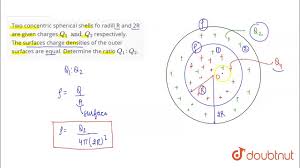 Two concentric spherical shells fo radii R and 2R
are given charges Q₁ and Q₂ respectively.
The surfaces charge densities of the outer
surfaces are equal. Determine the ratio Q₁ : Q₂.
Q₁:Q₂
ρ = Q/A
surface
ρ = Q₂/4π(2R)²
Q₂
Q₁
R
2R
doubtnut